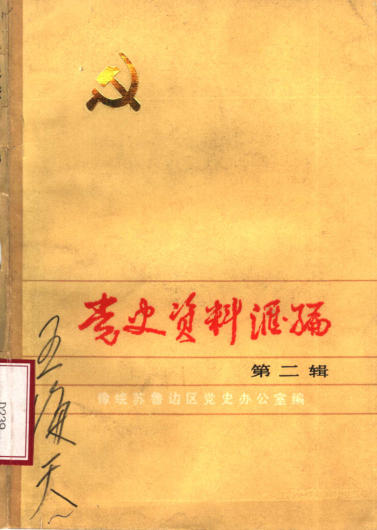 党史资料汇编
第二辑
豫皖苏鲁边区党史办公室编
王海天
D239